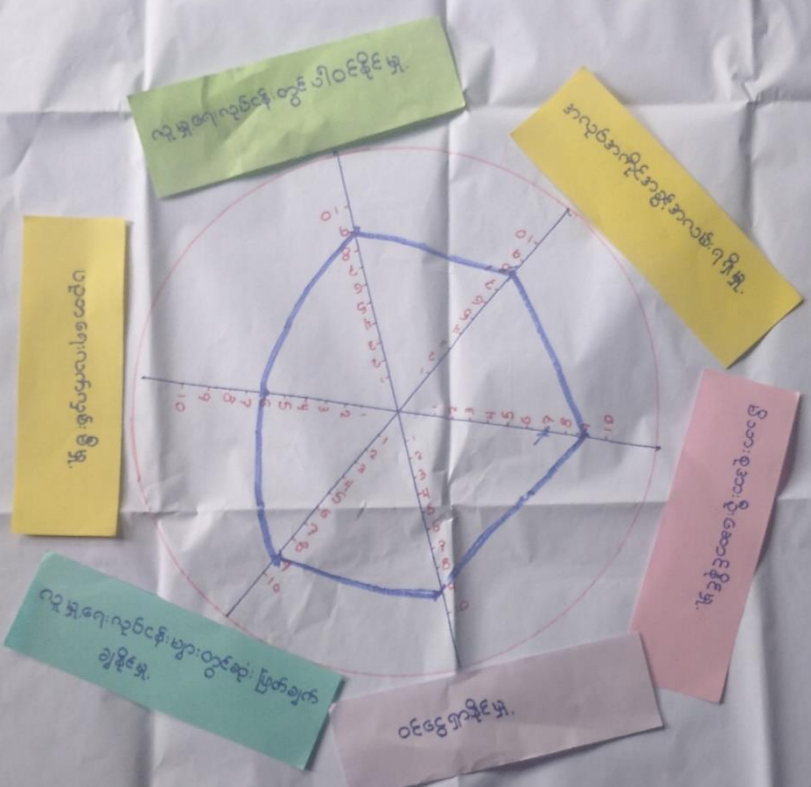 လူမှုရေးလုပ်ငန်းတွင် ပါဝင်နိုင်မှု.
အလုပ်အကိုင်အခွင့်အလမ်းရရှိမှု.
ဦးဆောင်နိုင်မှု.
ဝင်ငွေရှာနိုင်မှု.
လူမှုရေးလုပ်ငန်းများတွင်ဆုံးဖြတ်ချက်
ချနိုင်မှု.
1 2 3 4 5 6 7 8 9 10
1 2 3 4 5 6 7 8 9 10
1 2 3 4 5 6 7 8 9 10
1 2 3 4 5 6 7 8 9 10
1 2 3 4 5 6 7 8 9 10
1 2 3 4 5 6 7 8 9 10